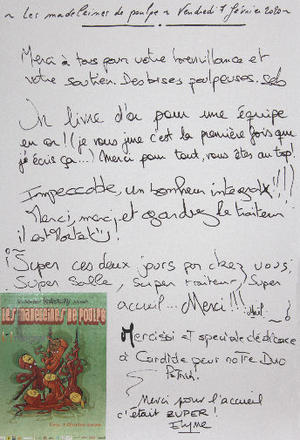 ~ Les madeleines de poulpe ~ Vendredi 7 février 2020 ~
Merci à tous pour votre bienveillance et
votre soutien. Des bises poulpeuses. Seb
Un livre d'or pour une équipe
en or! (je vous jure c'est la première fois que
j'écris ça...) Merci pour tout, vous êtes au top!
Impeccable, un bonheur intégral!!!
Merci, merci, et gardez le traiteur
il est
Super ces deux jours par chez vous,
Super salle, super traiteur, super
accueil... Merci!!!
Mercissi et spéciale dédicace
à Candide pour notre Duo
LES MADELEINES DE POULPE
Merci pour l'accueil
c'était SUPER!